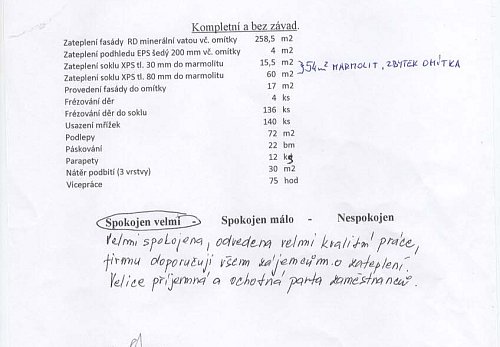 Kompletní a bez závad.
Zateplení fasády RD minerální vatou vč. omítky 258,5 m2
Zateplení podhledu EPS šedý 200 mm vč. omítky 4 m2
Zateplení soklu XPS tl. 30 mm do marmolitu 15,5 m2
Zateplení soklu XPS tl. 80 mm do marmolitu 60 m2
54m2 MARMOLIT, ZBYTEK OMÍTKA
Provedení fasády do omítky 17 m2
Frézování děr 4 ks
Frézování děr do soklu 136 ks
Usazení mřížek 140 ks
Podlepy 72 m2
Páskování 22 bm
Parapety 12 ks
Nátěr podbití (3 vrstvy) 30 m2
Vícepráce 75 hod
Spokojen velmi - Spokojen málo - Nespokojen
Velmi spokojena, odvedena velmi kvalitní práce,
firmu doporučuji všem zájemcům o zateplení.
Velice příjemná a ochotná parta zaměstnanců.